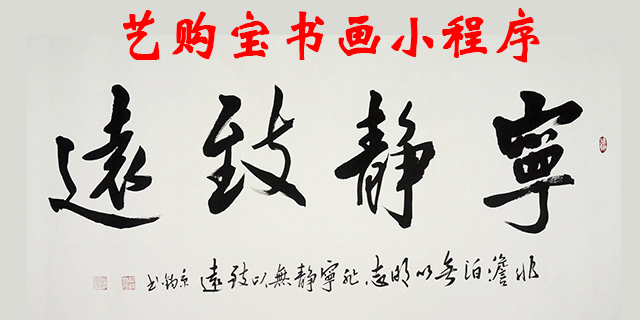 艺购宝书画小程序
寧静致遠
非澹泊無以明志非寧静無以致遠